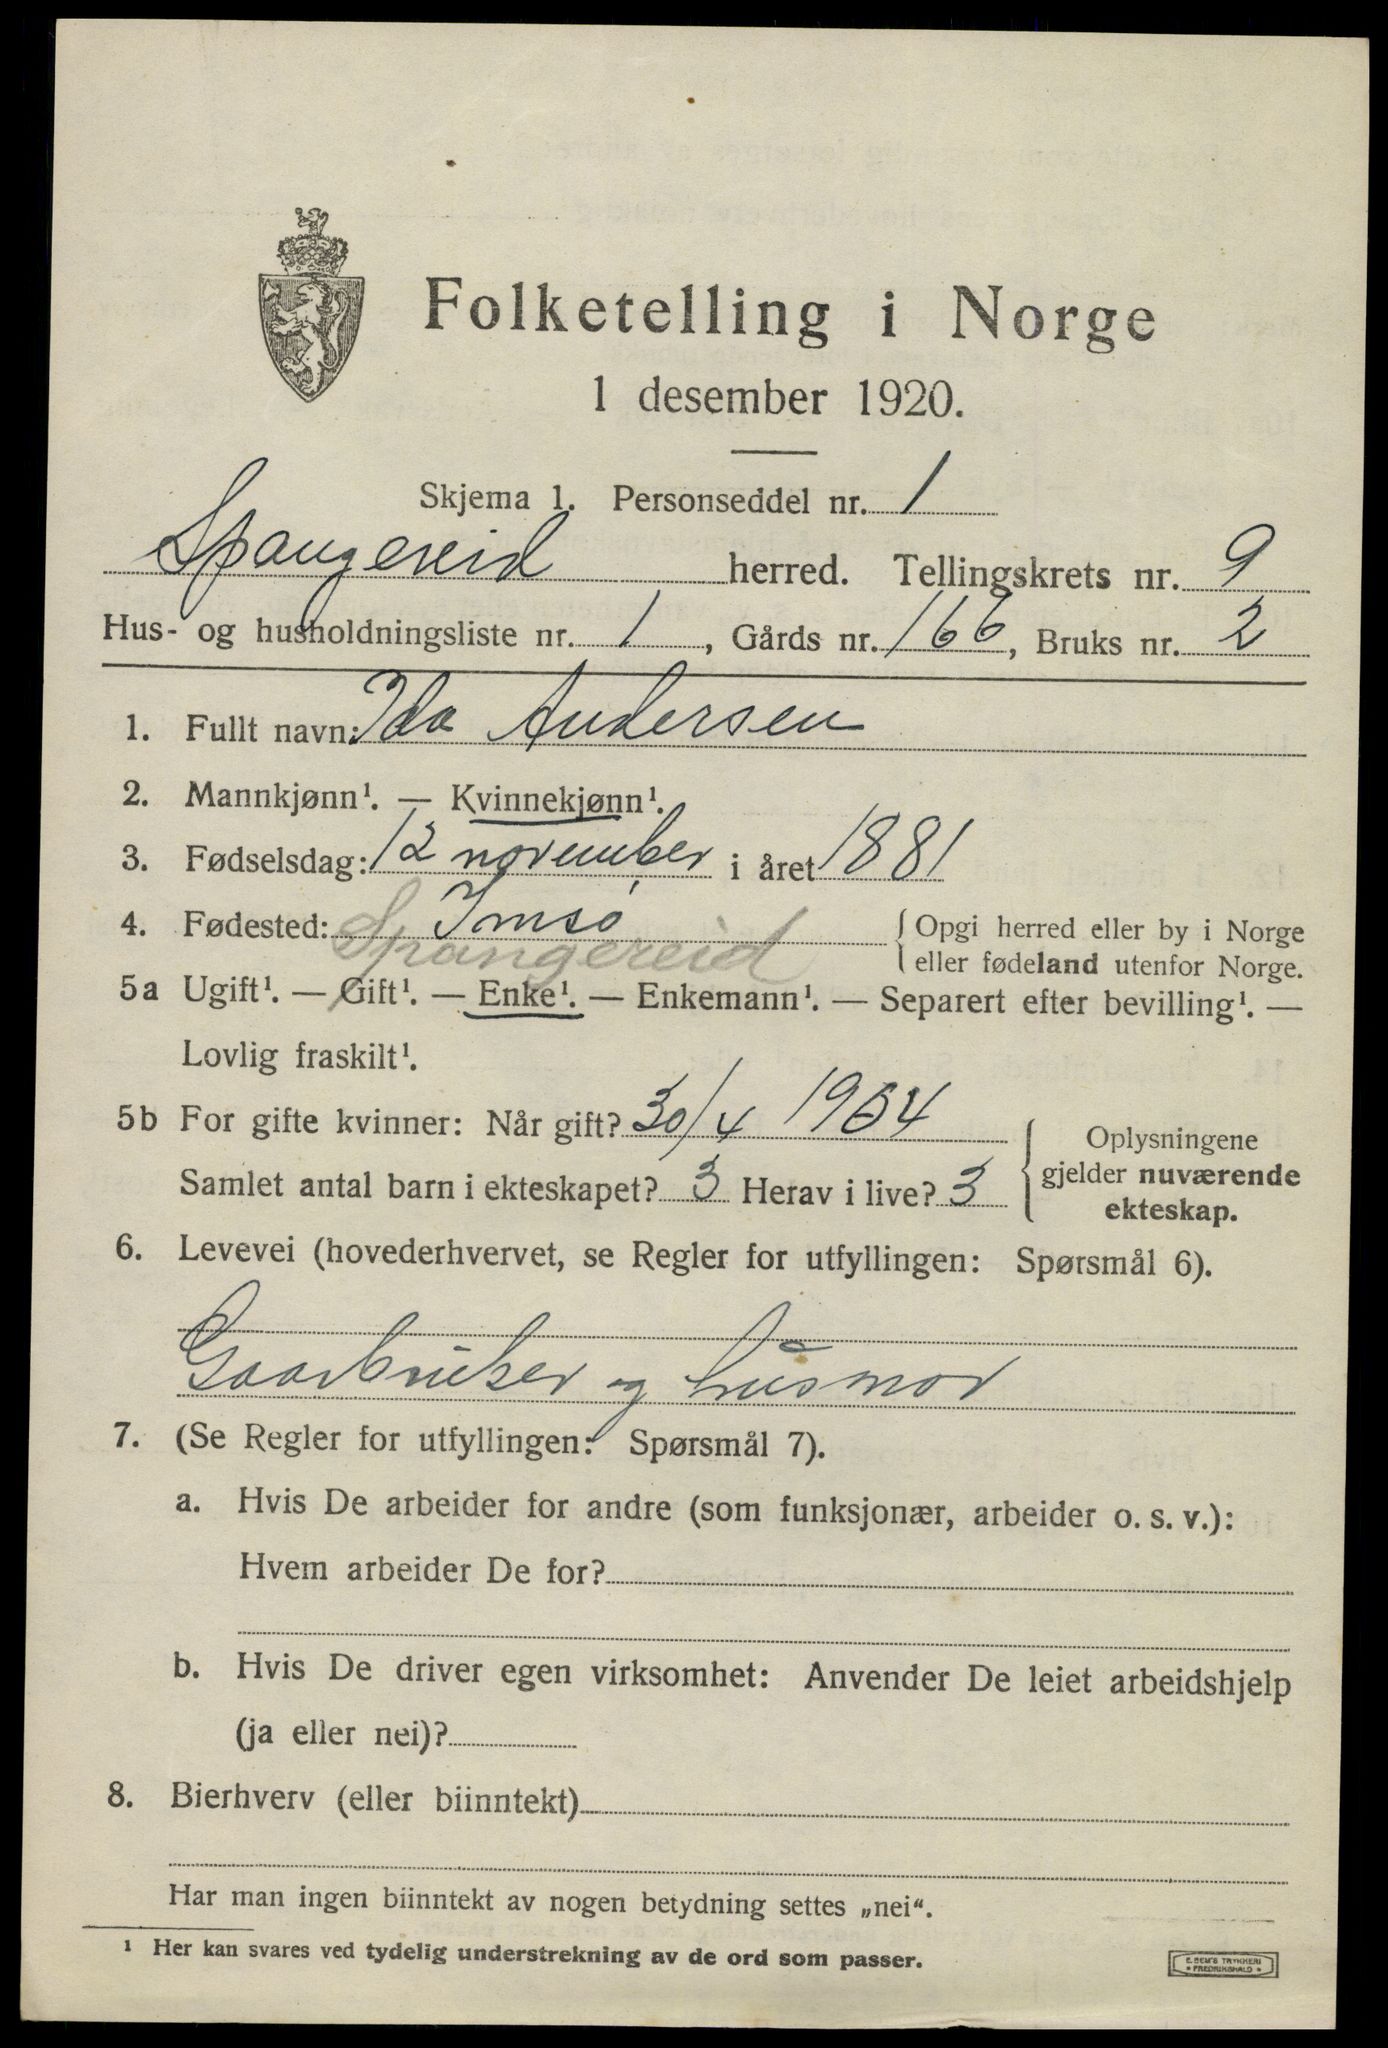 Folketelling i Norge
1 desember 1920.
Skjema 1. Personseddel nr. 1
Spangereid herred. Tellingskrets nr. 9
Hus- og husholdningsliste nr. 1, Gårds nr. 166, Bruks nr. 2
1. Fullt navn: Ida Andersen
2. Mannkjønn¹. — Kvinnekjønn¹.
3. Fødselsdag: 12 november i året 1881
4. Fødested: Imsø { Opgi herred eller by i Norge
Spangereid eller fødeland utenfor Norge.
5a Ugift¹. — Gift¹. — Enke¹. — Enkemann¹. — Separert efter bevilling¹. —
Lovlig fraskilt¹.
5b For gifte kvinner: Når gift? 30/4 1904
Oplysningene
Samlet antal barn i ekteskapet? 3 Herav i live? 3 { gjelder nuværende
ekteskap.
6. Levevei (hovederhvervet, se Regler for utfyllingen: Spørsmål 6).
Gaarbruker og husmor
7. (Se Regler for utfyllingen: Spørsmål 7).
a. Hvis De arbeider for andre (som funksjonær, arbeider o. s. v.):
Hvem arbeider De for?
b. Hvis De driver egen virksomhet: Anvender De leiet arbeidshjelp
(ja eller nei)?
8. Bierhverv (eller biinntekt)
Har man ingen biinntekt av nogen betydning settes „nei“.
¹ Her kan svares ved tydelig understrekning av de ord som passer.
E. SEM'S TRYKKERI
• FREDRIKSHALD •